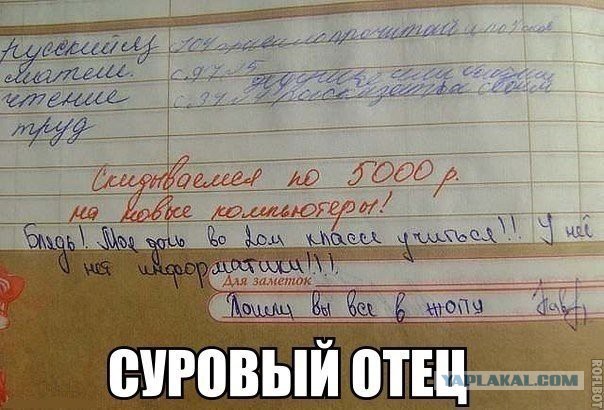 русский яз
матем. с. 97 N5
чтение с. 34 рассказать своим
труд
Скидываемся по 5000 р.
на новые компьютеры!
Блядь! Моя дочь во 2ом классе учиться!! У неё
нет информатики!!!!
Для заметок
Пошли вы все в жопу
СУРОВЫЙ ОТЕЦ
YAPLAKAL.COM
ROFLBOT